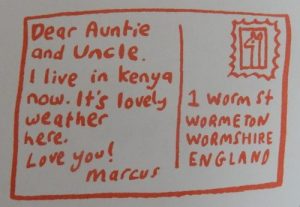 Dear Auntie
and Uncle.
I live in kenya
now. It's lovely
weather
here.
Love you!
Marcus
1 Worm St
WORMETON
WORMSHIRE
ENGLAND